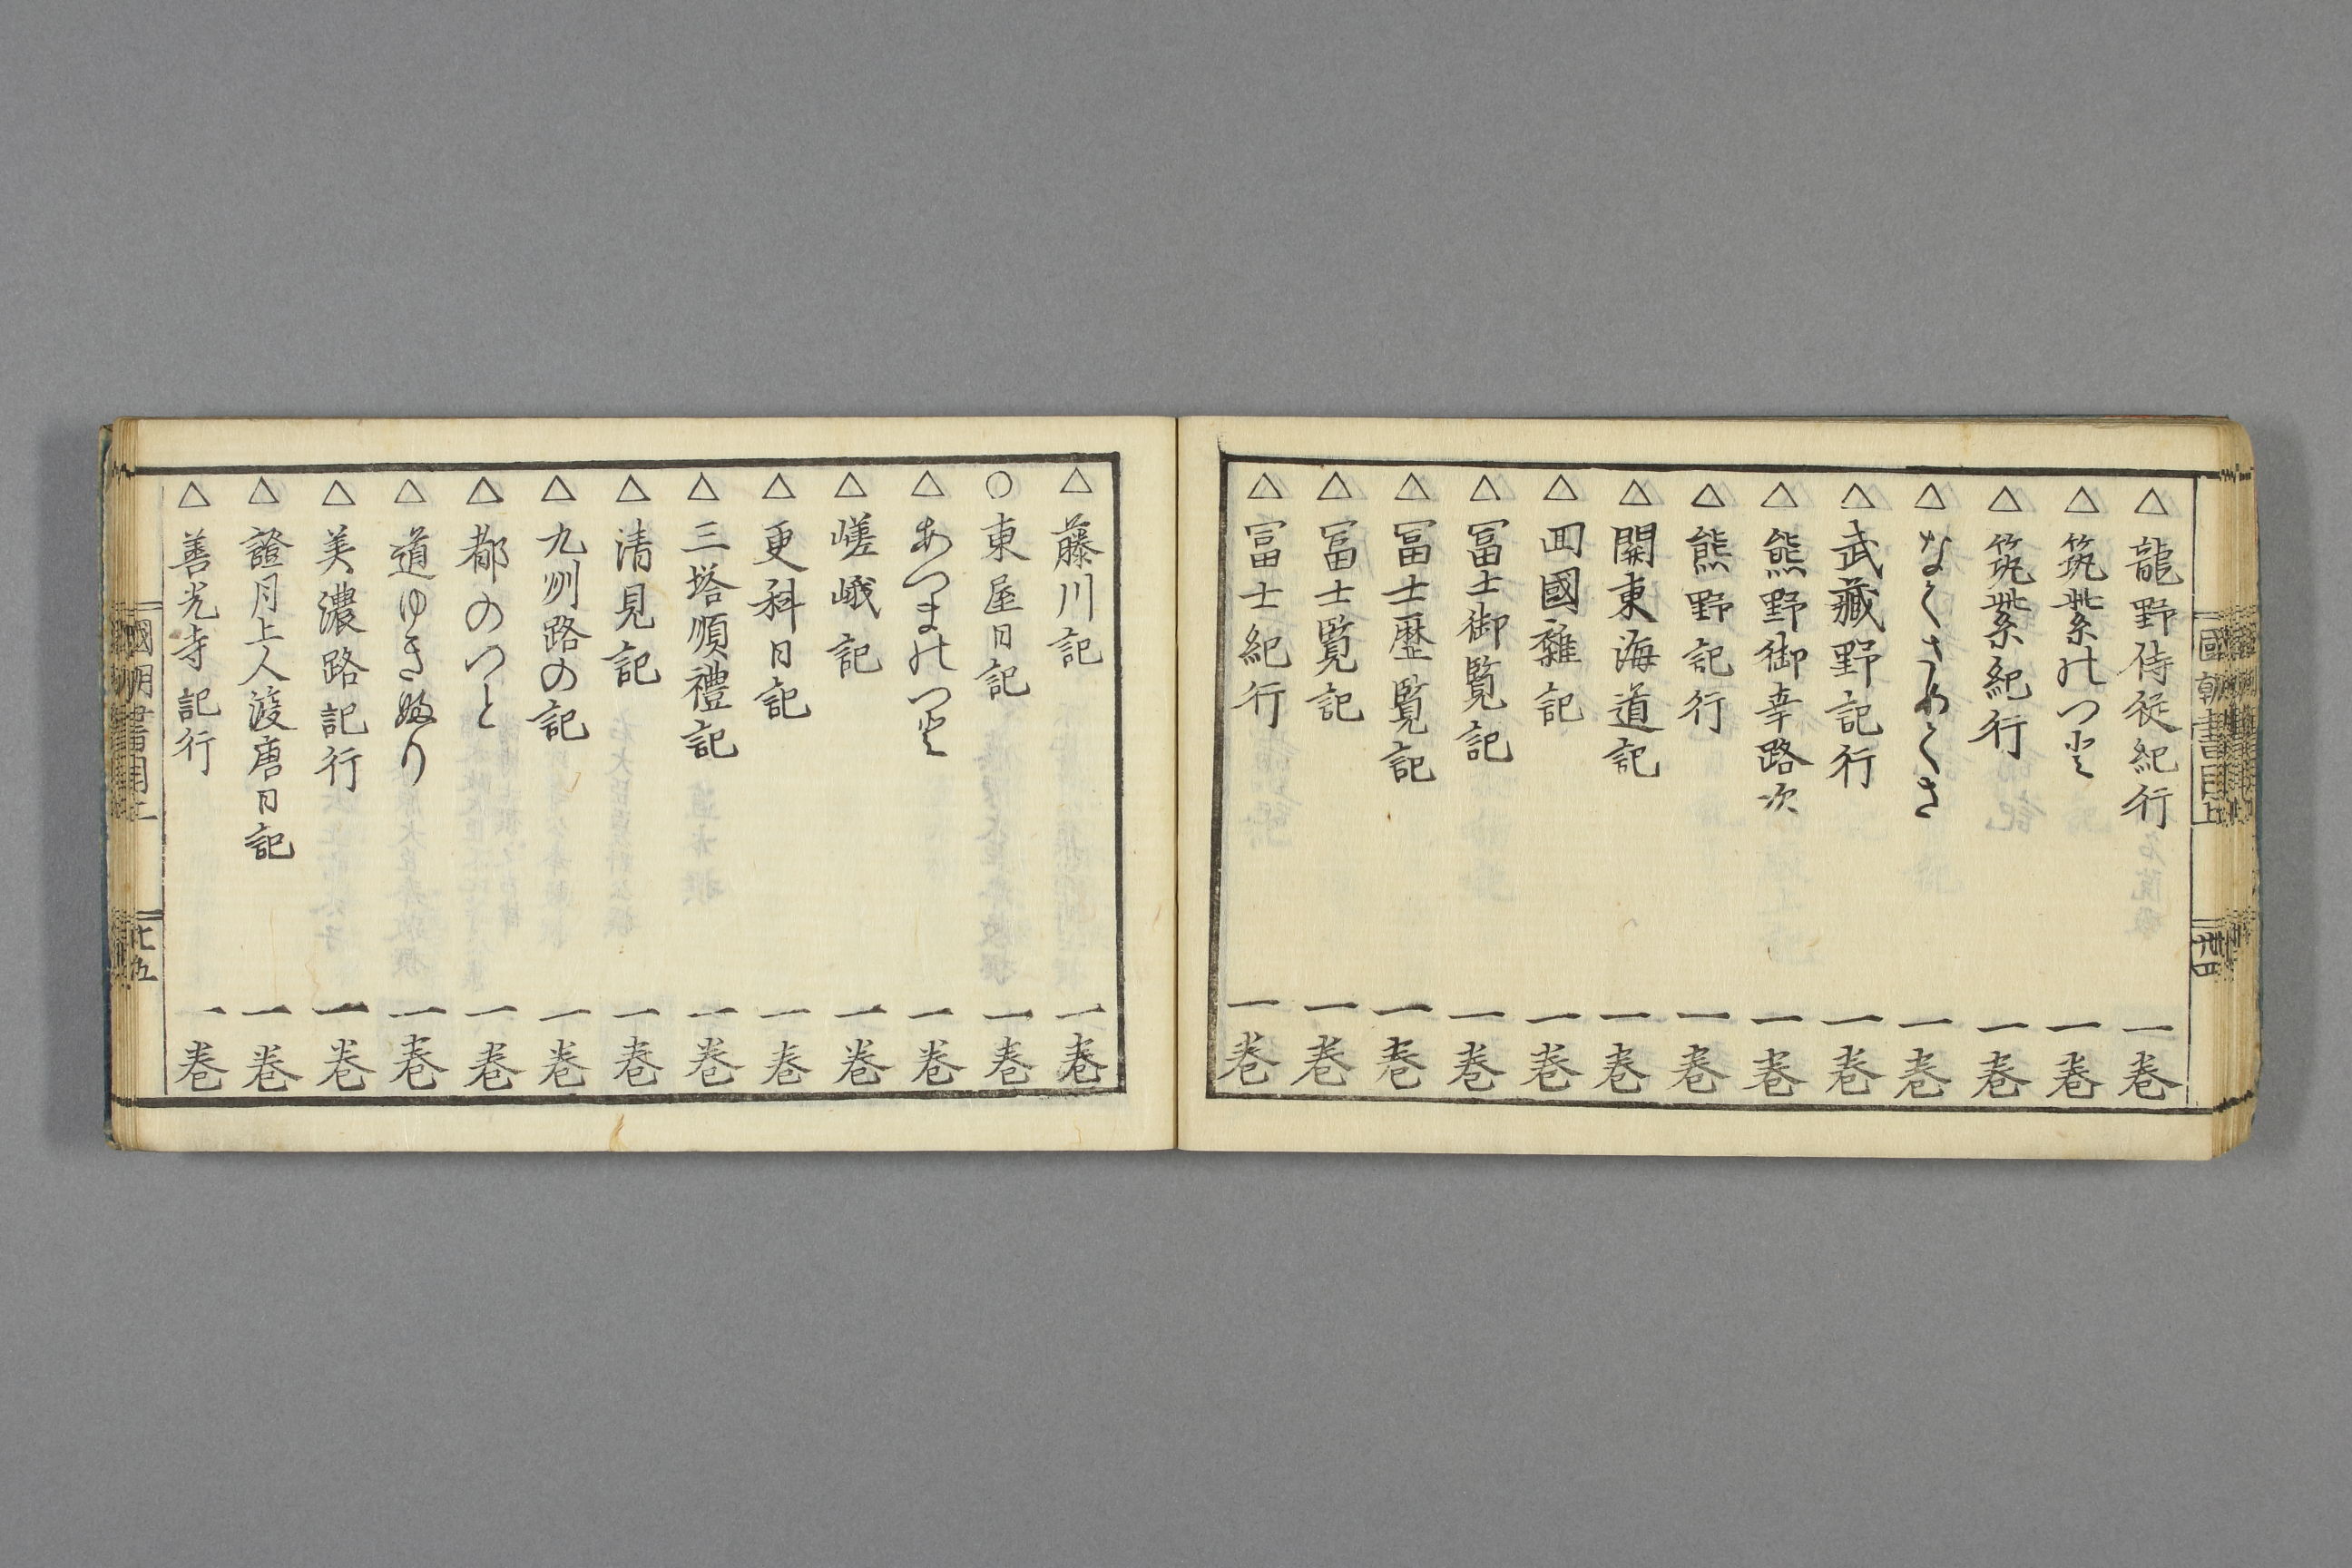 國朝書目上
廿四
△龍野侍従紀行 一巻
△筑紫のつと 一巻
△筑紫紀行 一巻
△なくさめくさ 一巻
△武藏野記行 一巻
△熊野御幸路次 一巻
△熊野記行 一巻
△關東海道記 一巻
△四國雜記 一巻
△冨士御覧記 一巻
△冨士歴覧記 一巻
△冨士覧記 一巻
△冨士紀行 一巻
△藤川記 一巻
○東屋日記 一巻
△あつまのつと 一巻
△嵯峨記 一巻
△更科日記 一巻
△三塔順禮記 一巻
△清見記 一巻
△九州路の記 一巻
△都のつと 一巻
△道ゆきふり 一巻
△美濃路記行 一巻
△證月上人渡唐日記 一巻
△善光寺記行 一巻
國朝書目上
廿五